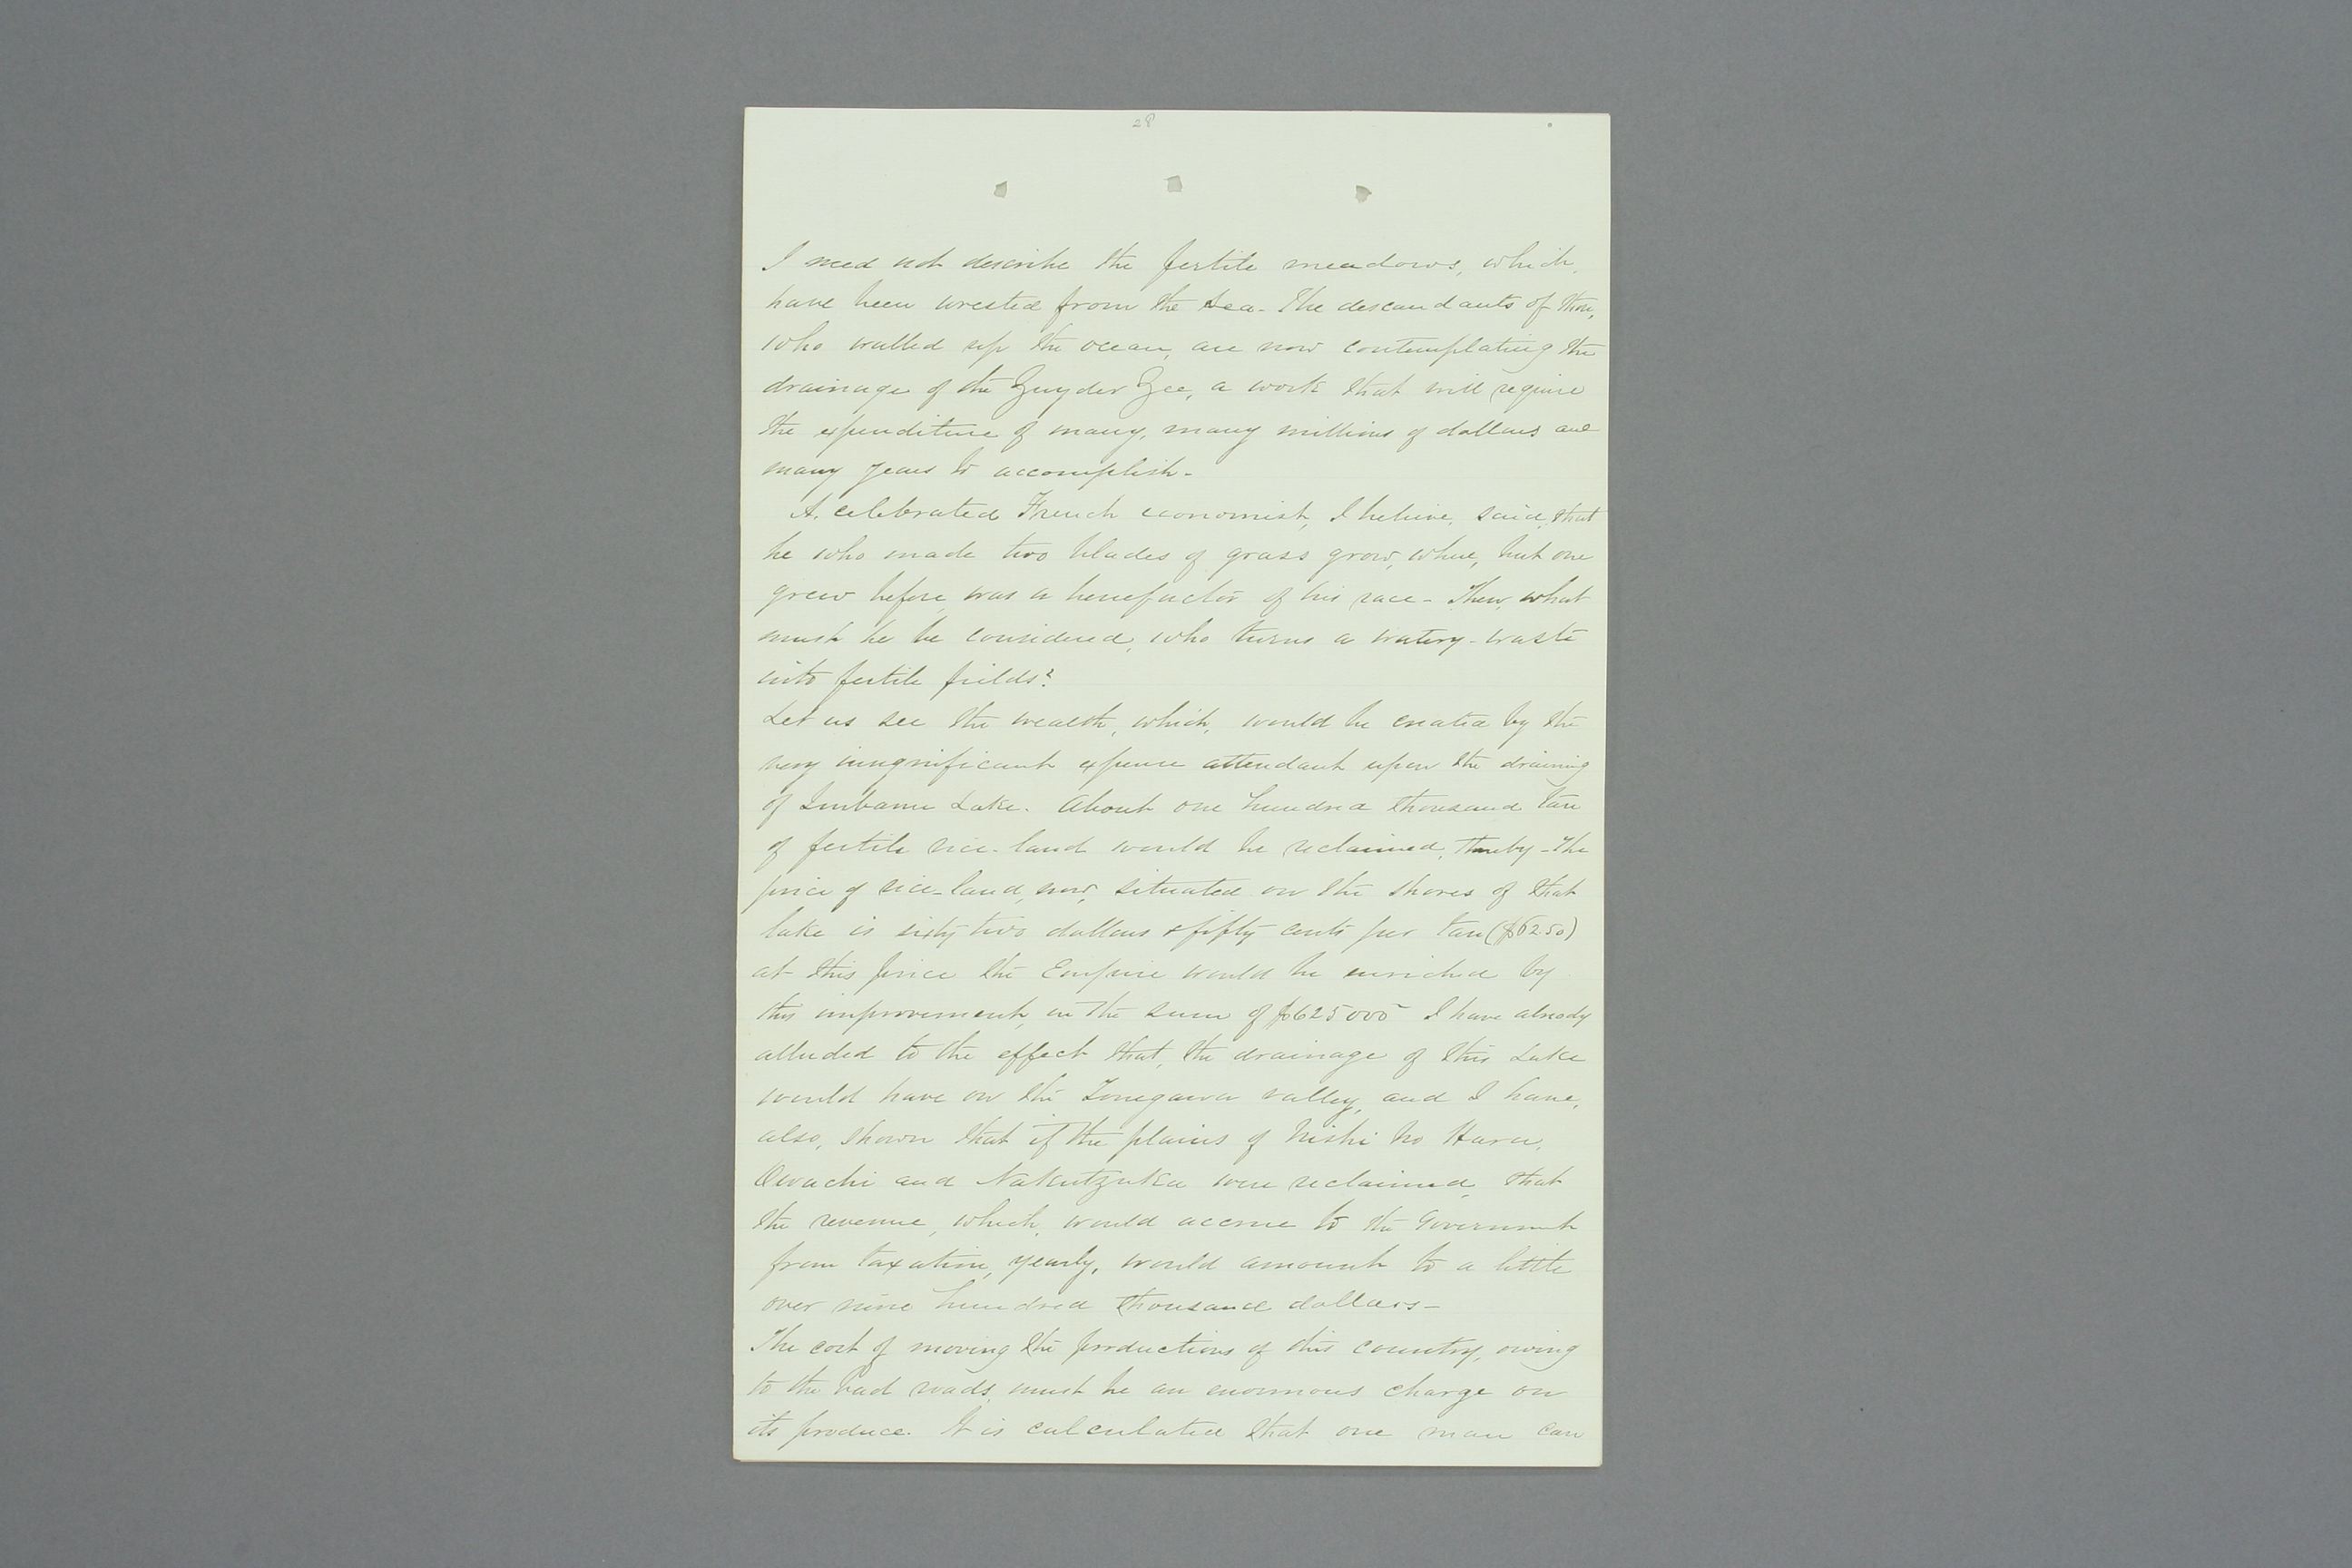 28
I need not describe the fertile meadows, which,
have been wrested from the Sea - The descendants of those,
who walled up the ocean, are now contemplating the
drainage of the Zuyder Zee, a work that will require
the expenditure of many, many millions of dollars and
many years to accomplish -
A. celebrated French economist, I believe, said, that
he who made two blades of grass grow, where, but one
grew before, was a benefactor of his race - Then, what
must he be considered, who turns a watery-waste
into fertile fields?
Let us see the wealth, which, would be created by the
very insignificant expense attendant upon the draining
of Lake. About one hundred thousand tan
of fertile rice-land would be reclaimed, thereby - The
price of rice-land, now, situated on the shores of that
lake is sixty two dollars & fifty cents per tan ($62.50)
at this price the Empire would be enriched by
this improvement, in the sum of $625000 I have already
alluded to the effect that, the drainage of this Lake
would have on the Tonegawa valley, and I have,
also, shown that if the plains of Nishi No Hara,
Owachi and Nakatzuka were reclaimed, that
the revenue, which, would accrue to the Government
from taxation, yearly, would amount to a little
over nine hundred thousand dollars -
The cost of moving the productions of this country, owing
to the bad roads, must be an enormous charge on
its produce. It is calculated that one man can